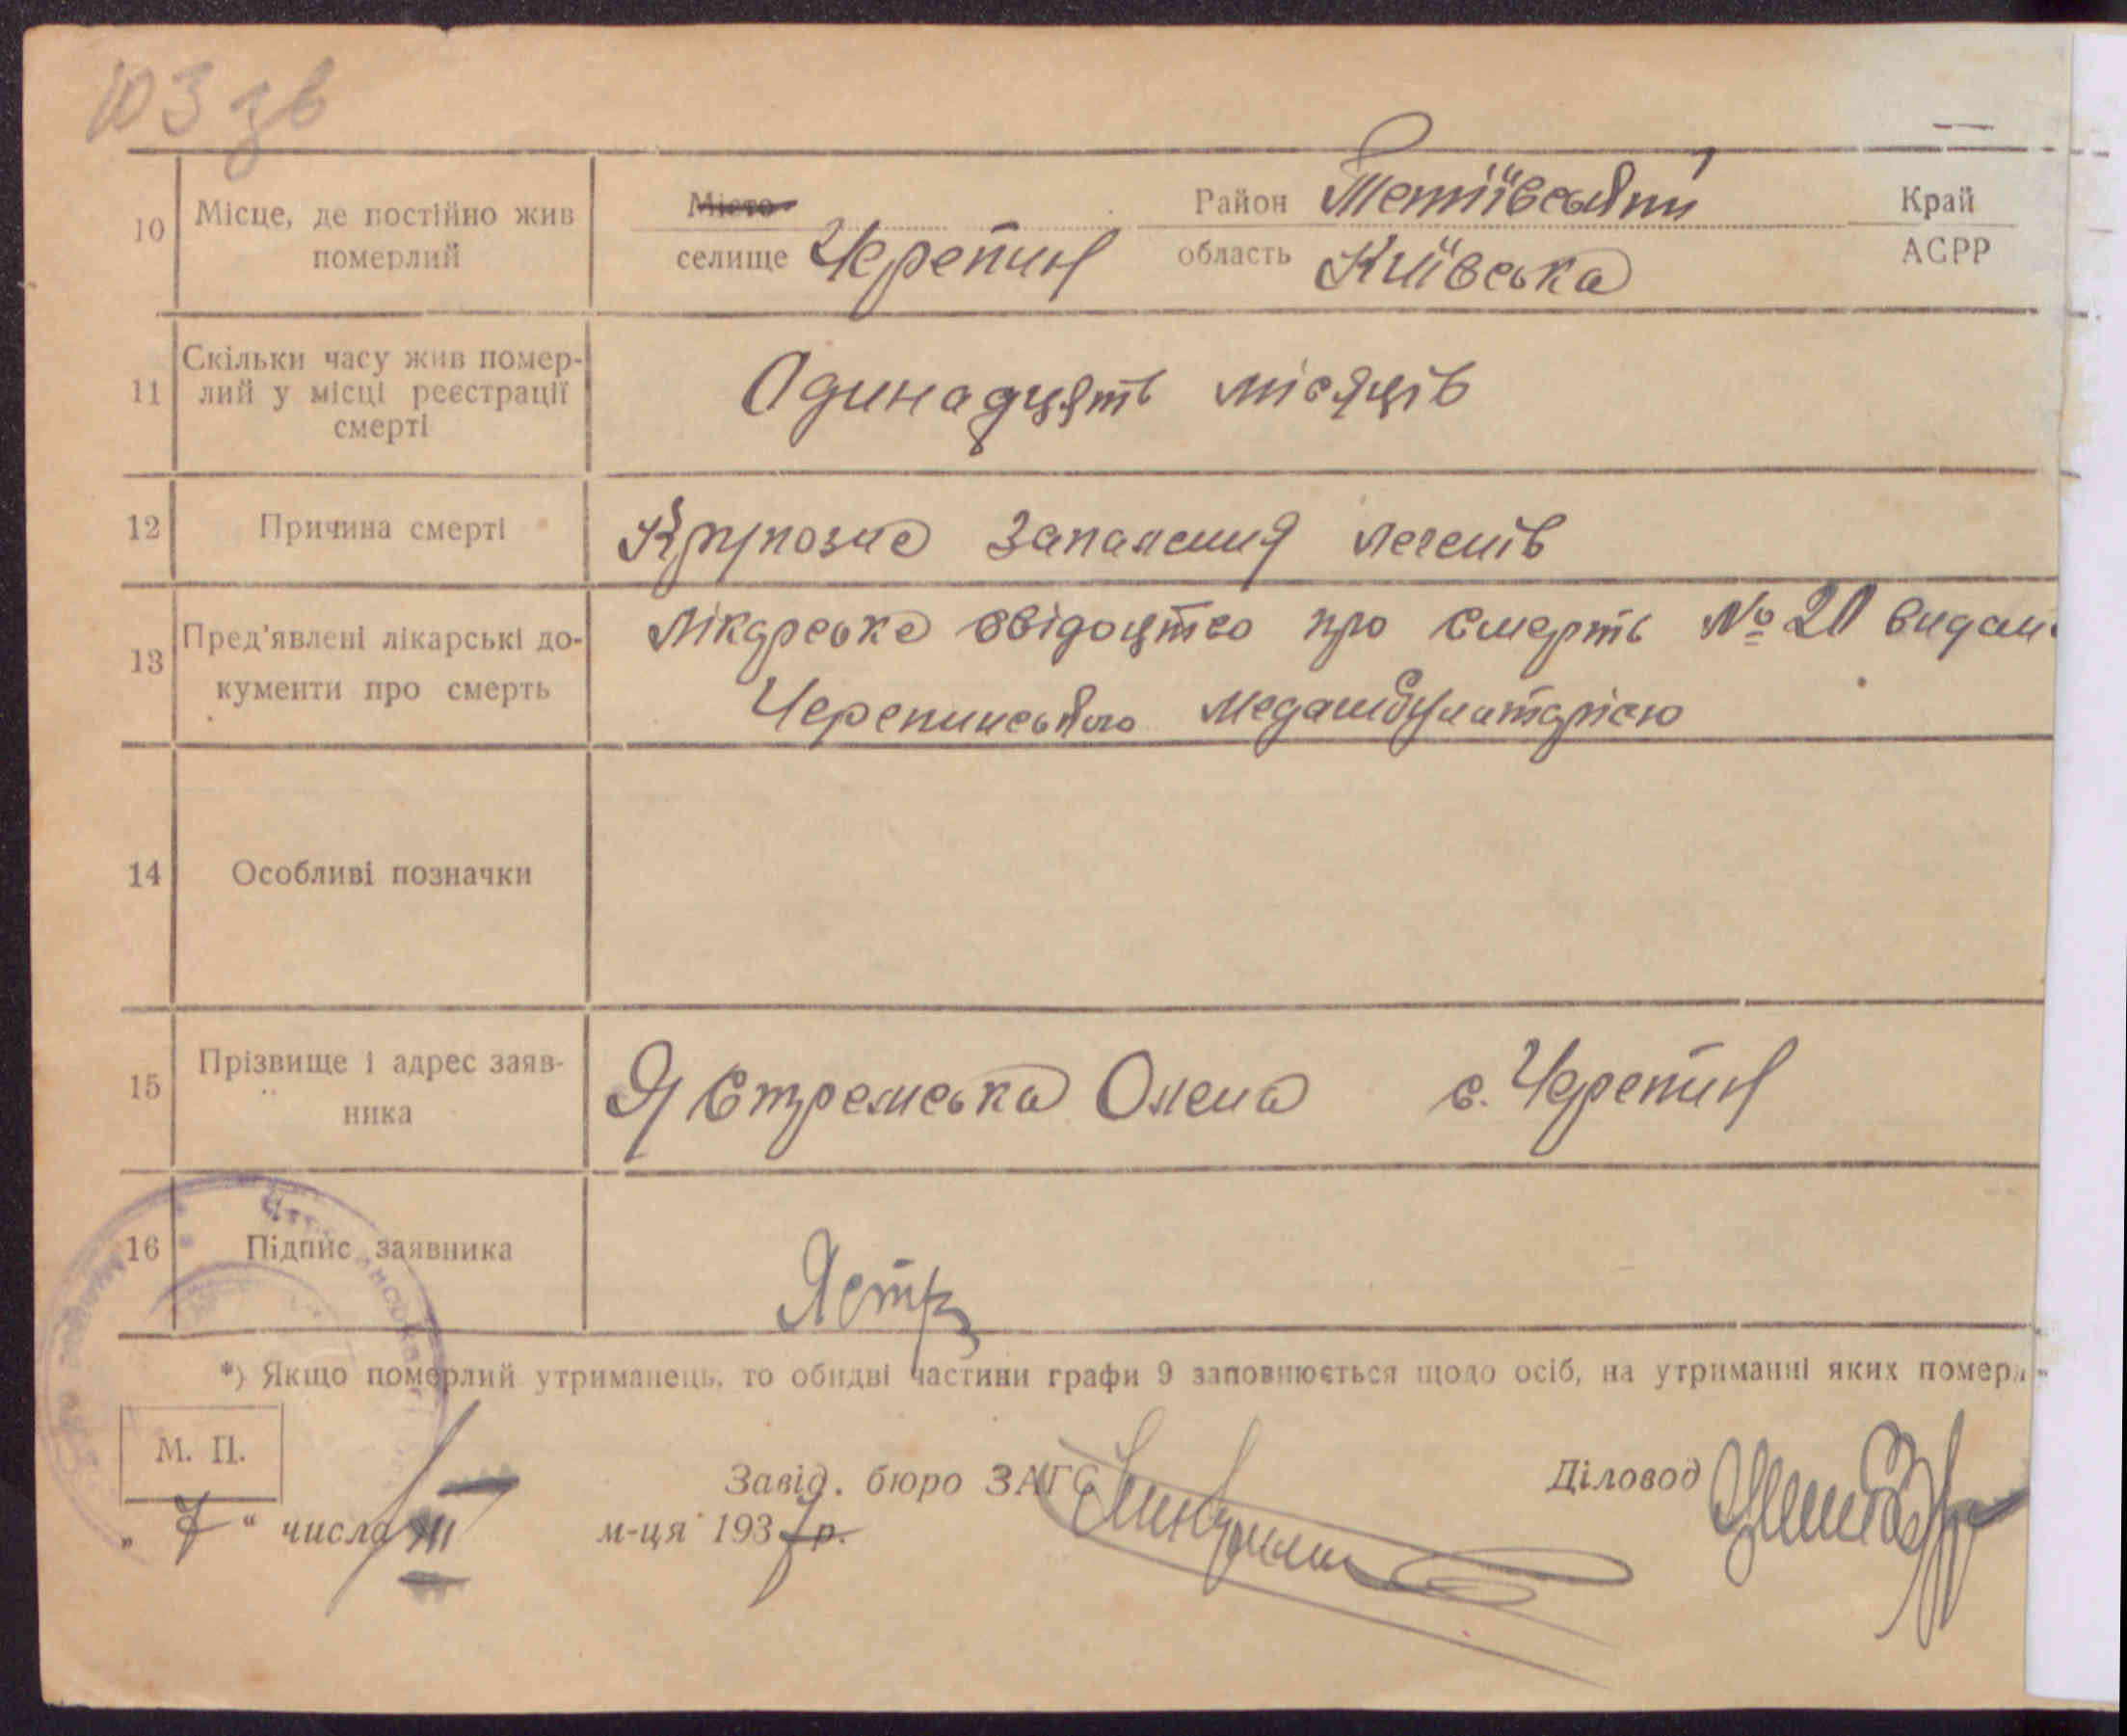 103 зв
10 Місце, де постійно жив померлий
Місто
селище Черепин
Район Тетіївський
область Київська
Край
АСРР
11 Скільки часу жив помер-
лий у місці реєстрації
смерті
Одинадцять місяців
12 Причина смерті
Крупозне запалення легенів
13 Пред'явлені лікарські до-
кументи про смерть
Лікарське свідоцтво про смерть № 20 видан
Черепинською медамбулаторією
14 Особливі позначки
15 Прізвище і адрес заяв-
ника
Ястремська Олена с. Черепин
16 Підпис заявника
Ястр
*) Якщо померлий утриманець, то обидві частини графи 9 заповнюється щодо осіб, на утриманні яких помер
М. П.
Завід. бюро ЗАГС
Діловод
„ 7 “ числа III м-ця 1937 р.